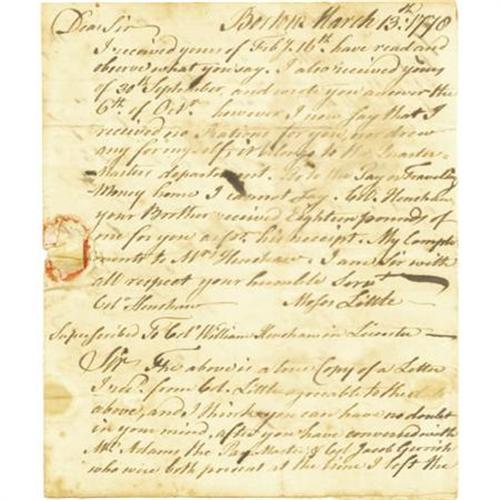 Dear Sir Boston March 13th. 1778
I received yours of Feby. 16th. have read and
observe what you say. I also received yours
of 30th September, and wrote you answer the
6th. of Octr. however I now say that I
received no Rations for you, nor drew
any for myself, it belongs to the Quarter
Masters department. As to the Pay or Traveling
-Money home I cannot say. Col. Henshaw
your Brother received Eighteen pounds of
me for you as pr. his receipt. My Comple
ments to Mrs. Henshaw. I am Sir with
all respect your humble Servt.
Col. Henshaw Moses Little
Superscribed To Col. William Henshaw in Leicester
Sir The above is a true Copy of a Letter
I recd. from Col. Little agreeable to the date
above, and I think you can have no doubt
in your mind, after you have conversed with
Mr. Adams the Pay Master & Col. Jacob Gerrish
who were both present at the time I left the